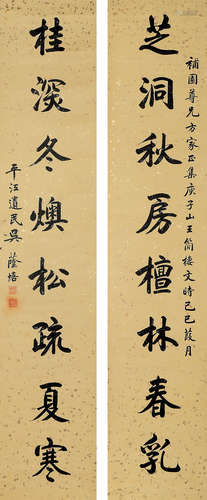 芝洞秋房檀林春乳
補國尊兄方家正集庾子山王簡棲文時己巳葭月
桂深冬燠松疏夏寒
平江遺民吳蔭培